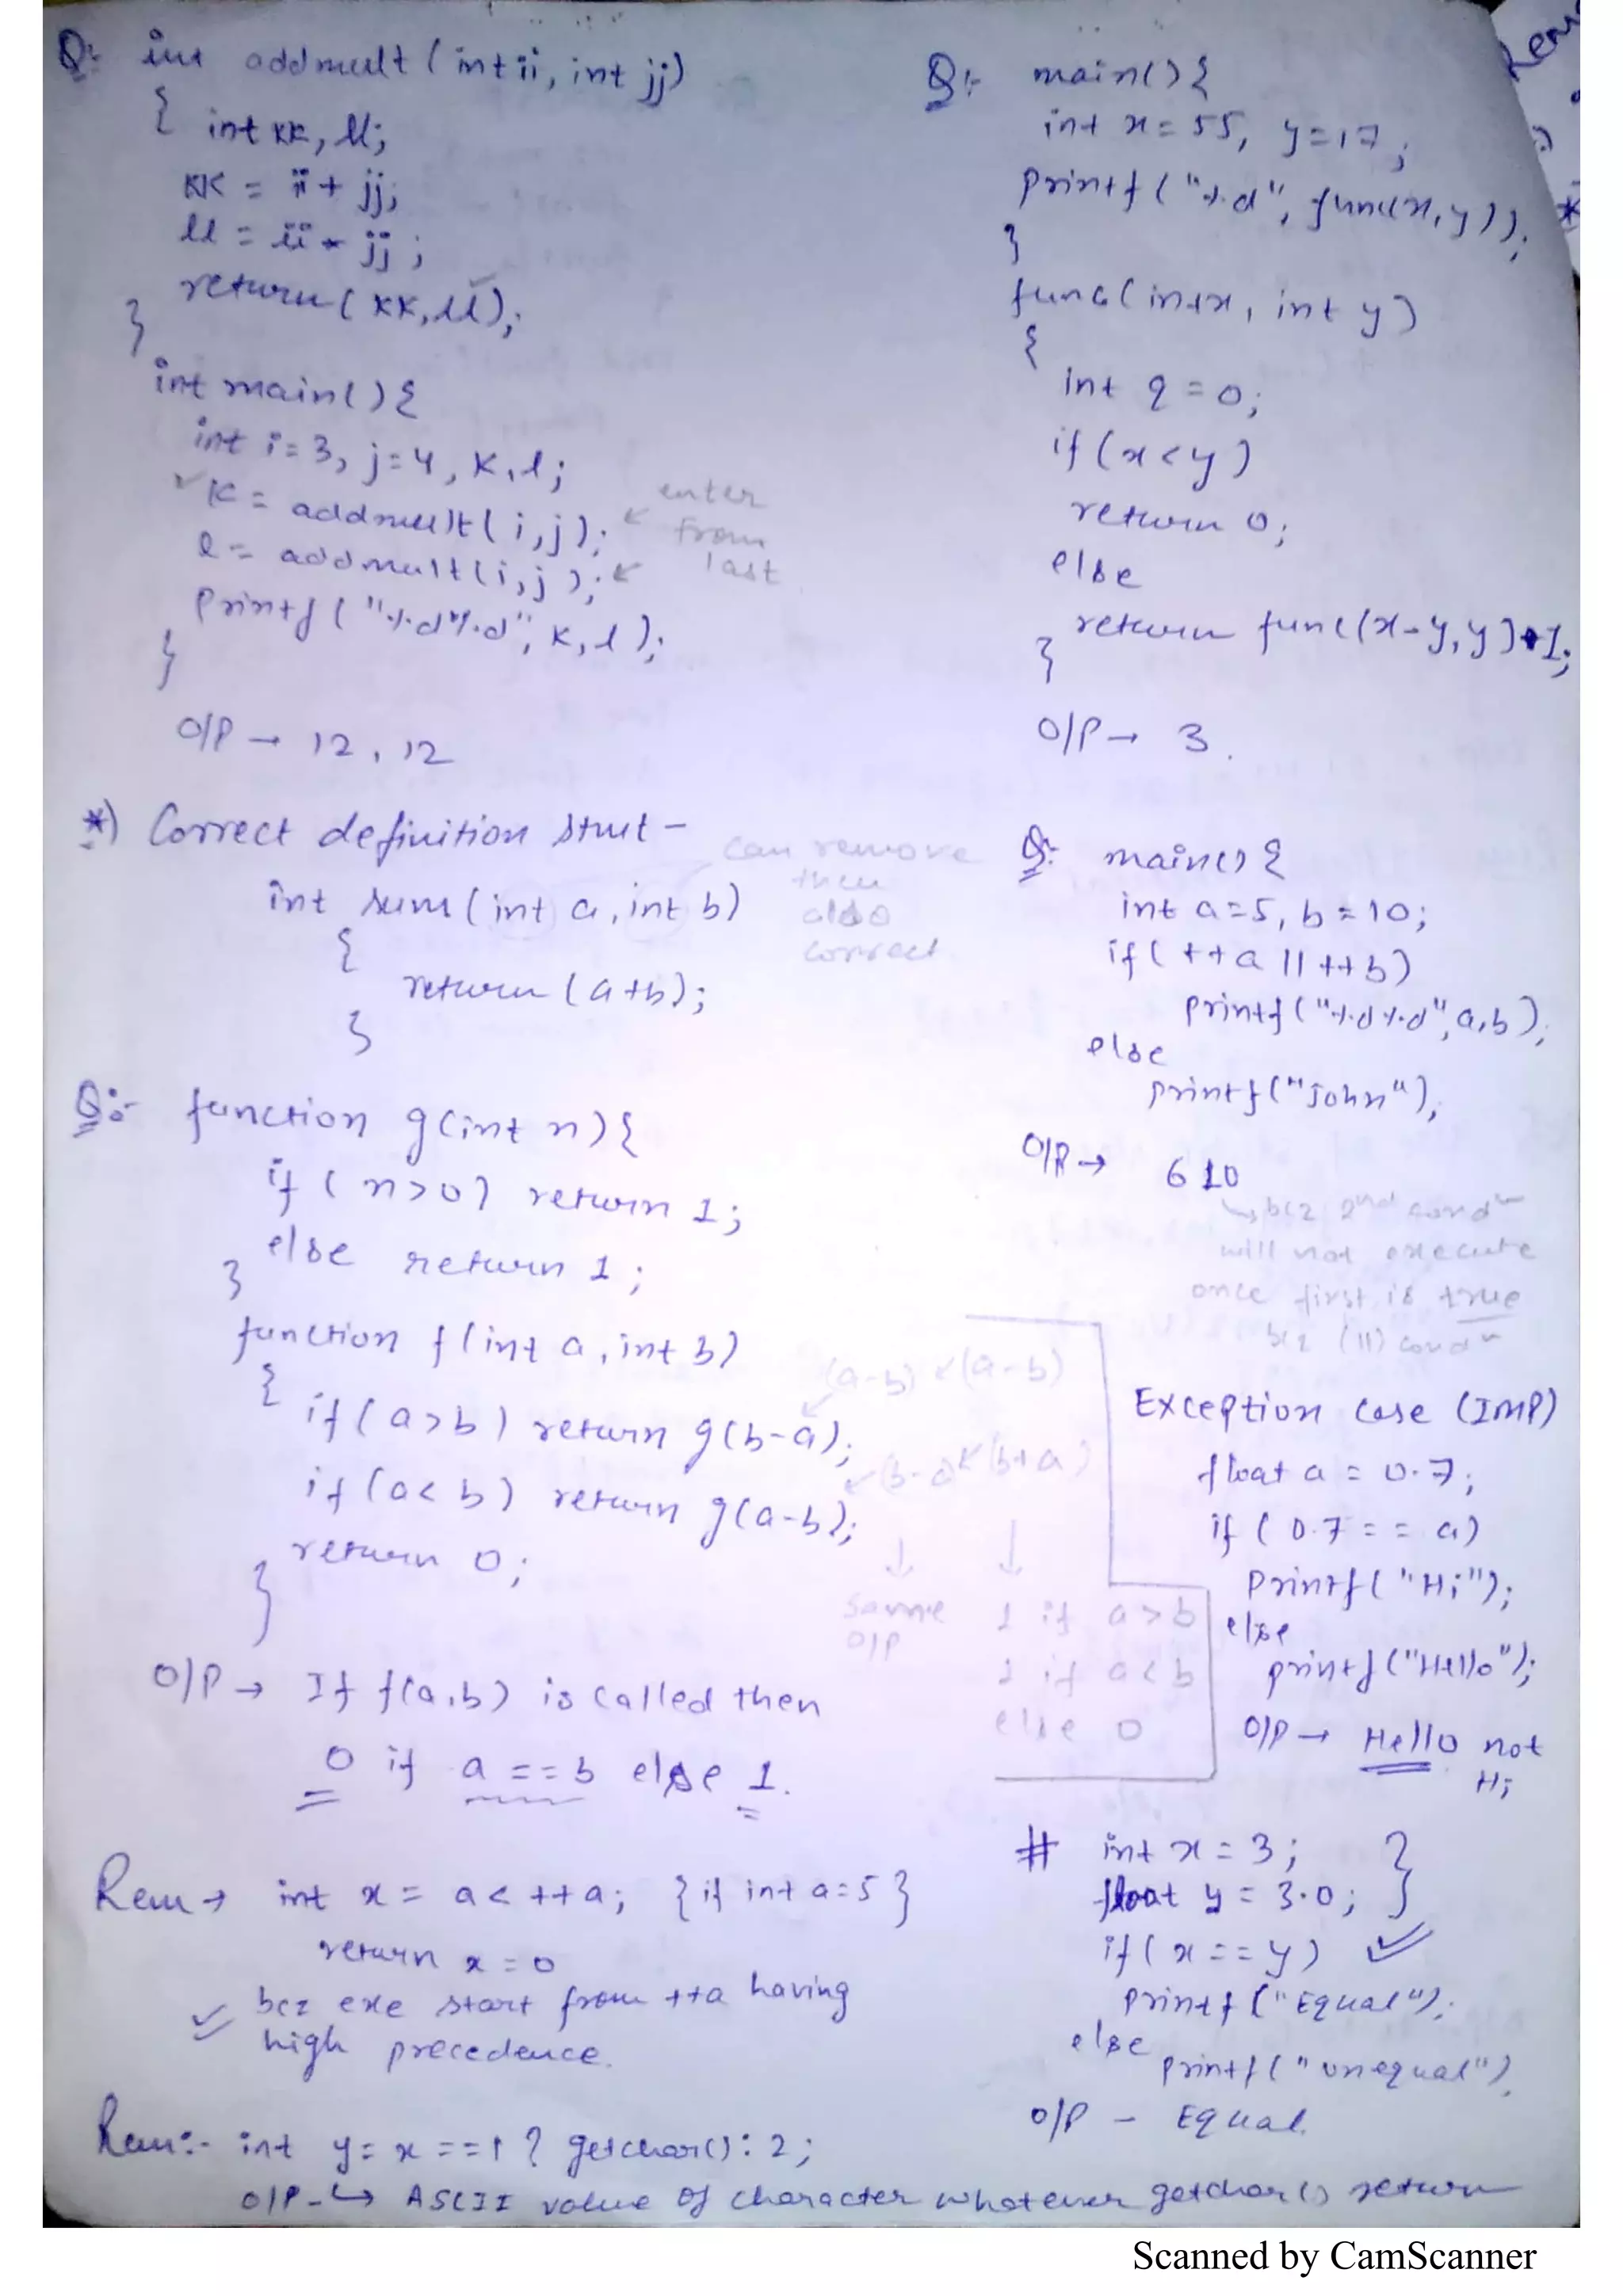 Q:- int addmult (int ii, int jj)
{ int kk, ll;
kk = ii + jj;
ll = ii * jj ;
return ( kk, ll);
}
int main( ) {
int i = 3, j = 4, k, l ;
k = addmult ( i, j );
l = addmult ( i, j );
enter
from
last
printf ( "%d%d", k, l );
}
O/P → 12, 12
*) Correct definition stmt -
int sum (int a, int b)
{
return (a+b);
}
can remove
then
also
correct.
Q:- function g(int n) {
if ( n>0) return 1;
else return 1 ;
}
function f (int a, int b)
{
if ( a>b ) return g(b-a);
if (a< b) return g(a-b);
return 0 ;
}
(a-b) (a-b)
(b-a (b+a)
same
O/P
1 if a > b
1 if a < b
else 0
O/P → If f(a,b) is called then
0 if a == b else 1.
Rem → int x = a < ++a; { if int a=5 }
return x = 0
bcz exe start from ++a having
high precedence.
Rem:- int y = x ==1 ? getchar() : 2 ;
O/P → ASCII value of character whatever getchar() return
Q:- main() {
int x = 55, y = 17 ;
printf ( "%d", func(x, y) );
}
func( int x, int y )
{
int q = 0;
if (x < y )
return 0 ;
else
return func (x-y, y )+1;
}
O/P → 3 .
Q:- main() {
int a=5, b = 10;
if ( ++a || ++b)
printf ("%d %d", a, b );
else
printf ("john");
O/P → 6 10
bcz 2nd condn
will not execute
once first is true
bcz (||) condn
Exception Case (IMP)
float a = 0.7;
if ( 0.7 == a)
Printf ( "Hi");
else
printf ("Hello");
O/P → Hello not
Hi
# int x = 3 ; }
float y = 3.0 ;
if ( x == y )
Printf ("Equal");
else
Printf ( "unequal")
O/P - Equal.
Scanned by CamScanner